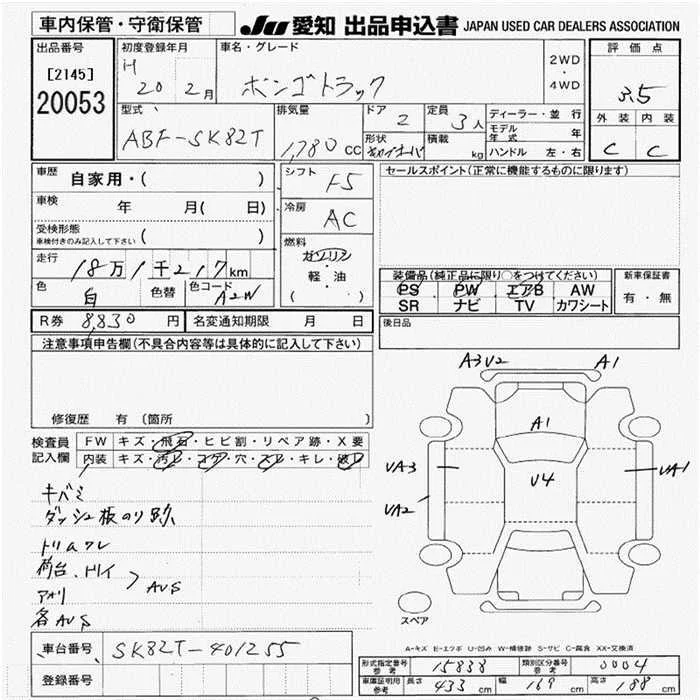 車内保管・守衛保管
JU 愛知 出品申込書 JAPAN USED CAR DEALERS ASSOCIATION
出品番号
[2145]
20053
初度登録年月
H 20 2月
車名・グレード
ボンゴトラック
2WD
・
4WD
評価点
3.5
外装 内装
C C
型式
ABF-SK82T
排気量
1,780 CC
ドア
2
定員
3人
形状
積載
kg
ディーラー・並 行
モデル年式 年
ハンドル 左・右
車歴
自家用・( )
車検
年 月( 日)
受検形態
車検付きのみ記入して下さい ( )
走行
18万1千217km
色
白
色替
色コード
A2W
シフト
F5
冷房
AC
燃料
ガソリン
・
軽・油
( )
セールスポイント(正常に機能するものに限ります)
装備品(純正品に限り○をつけてください)
PS・PW・エアB・AW
SR ナビ TV カワシート
新車保証書
有・無
R券 8,830 円
名変通知期限 月 日
後日品
注意事項申告欄(不具合内容等は具体的に記入して下さい)
修復歴 有 〔箇所 〕
検査員
記入欄
FW キズ・飛石・ヒビ割・リペア跡・X要
内装 キズ・汚レ・コゲ・穴・スレ・キレ・破レ
キバミ
ダッシュ板のリ跡
トリムワレ
荷台、トリイ
アオリ
AUS
各AUS
A3U2
A1
A1
U4
UA3
UA2
UA1
スペア
A-キズ E-エクボ U-凹み W-補修跡 S-サビ C-腐食 XX-交換済
車台番号
SK82T-401255
登録番号
形式指定番号
参考
15838
類別区分番号
参考
0004
車庫証明用
参考
長さ 433 cm
幅 169 cm
高さ 188 cm